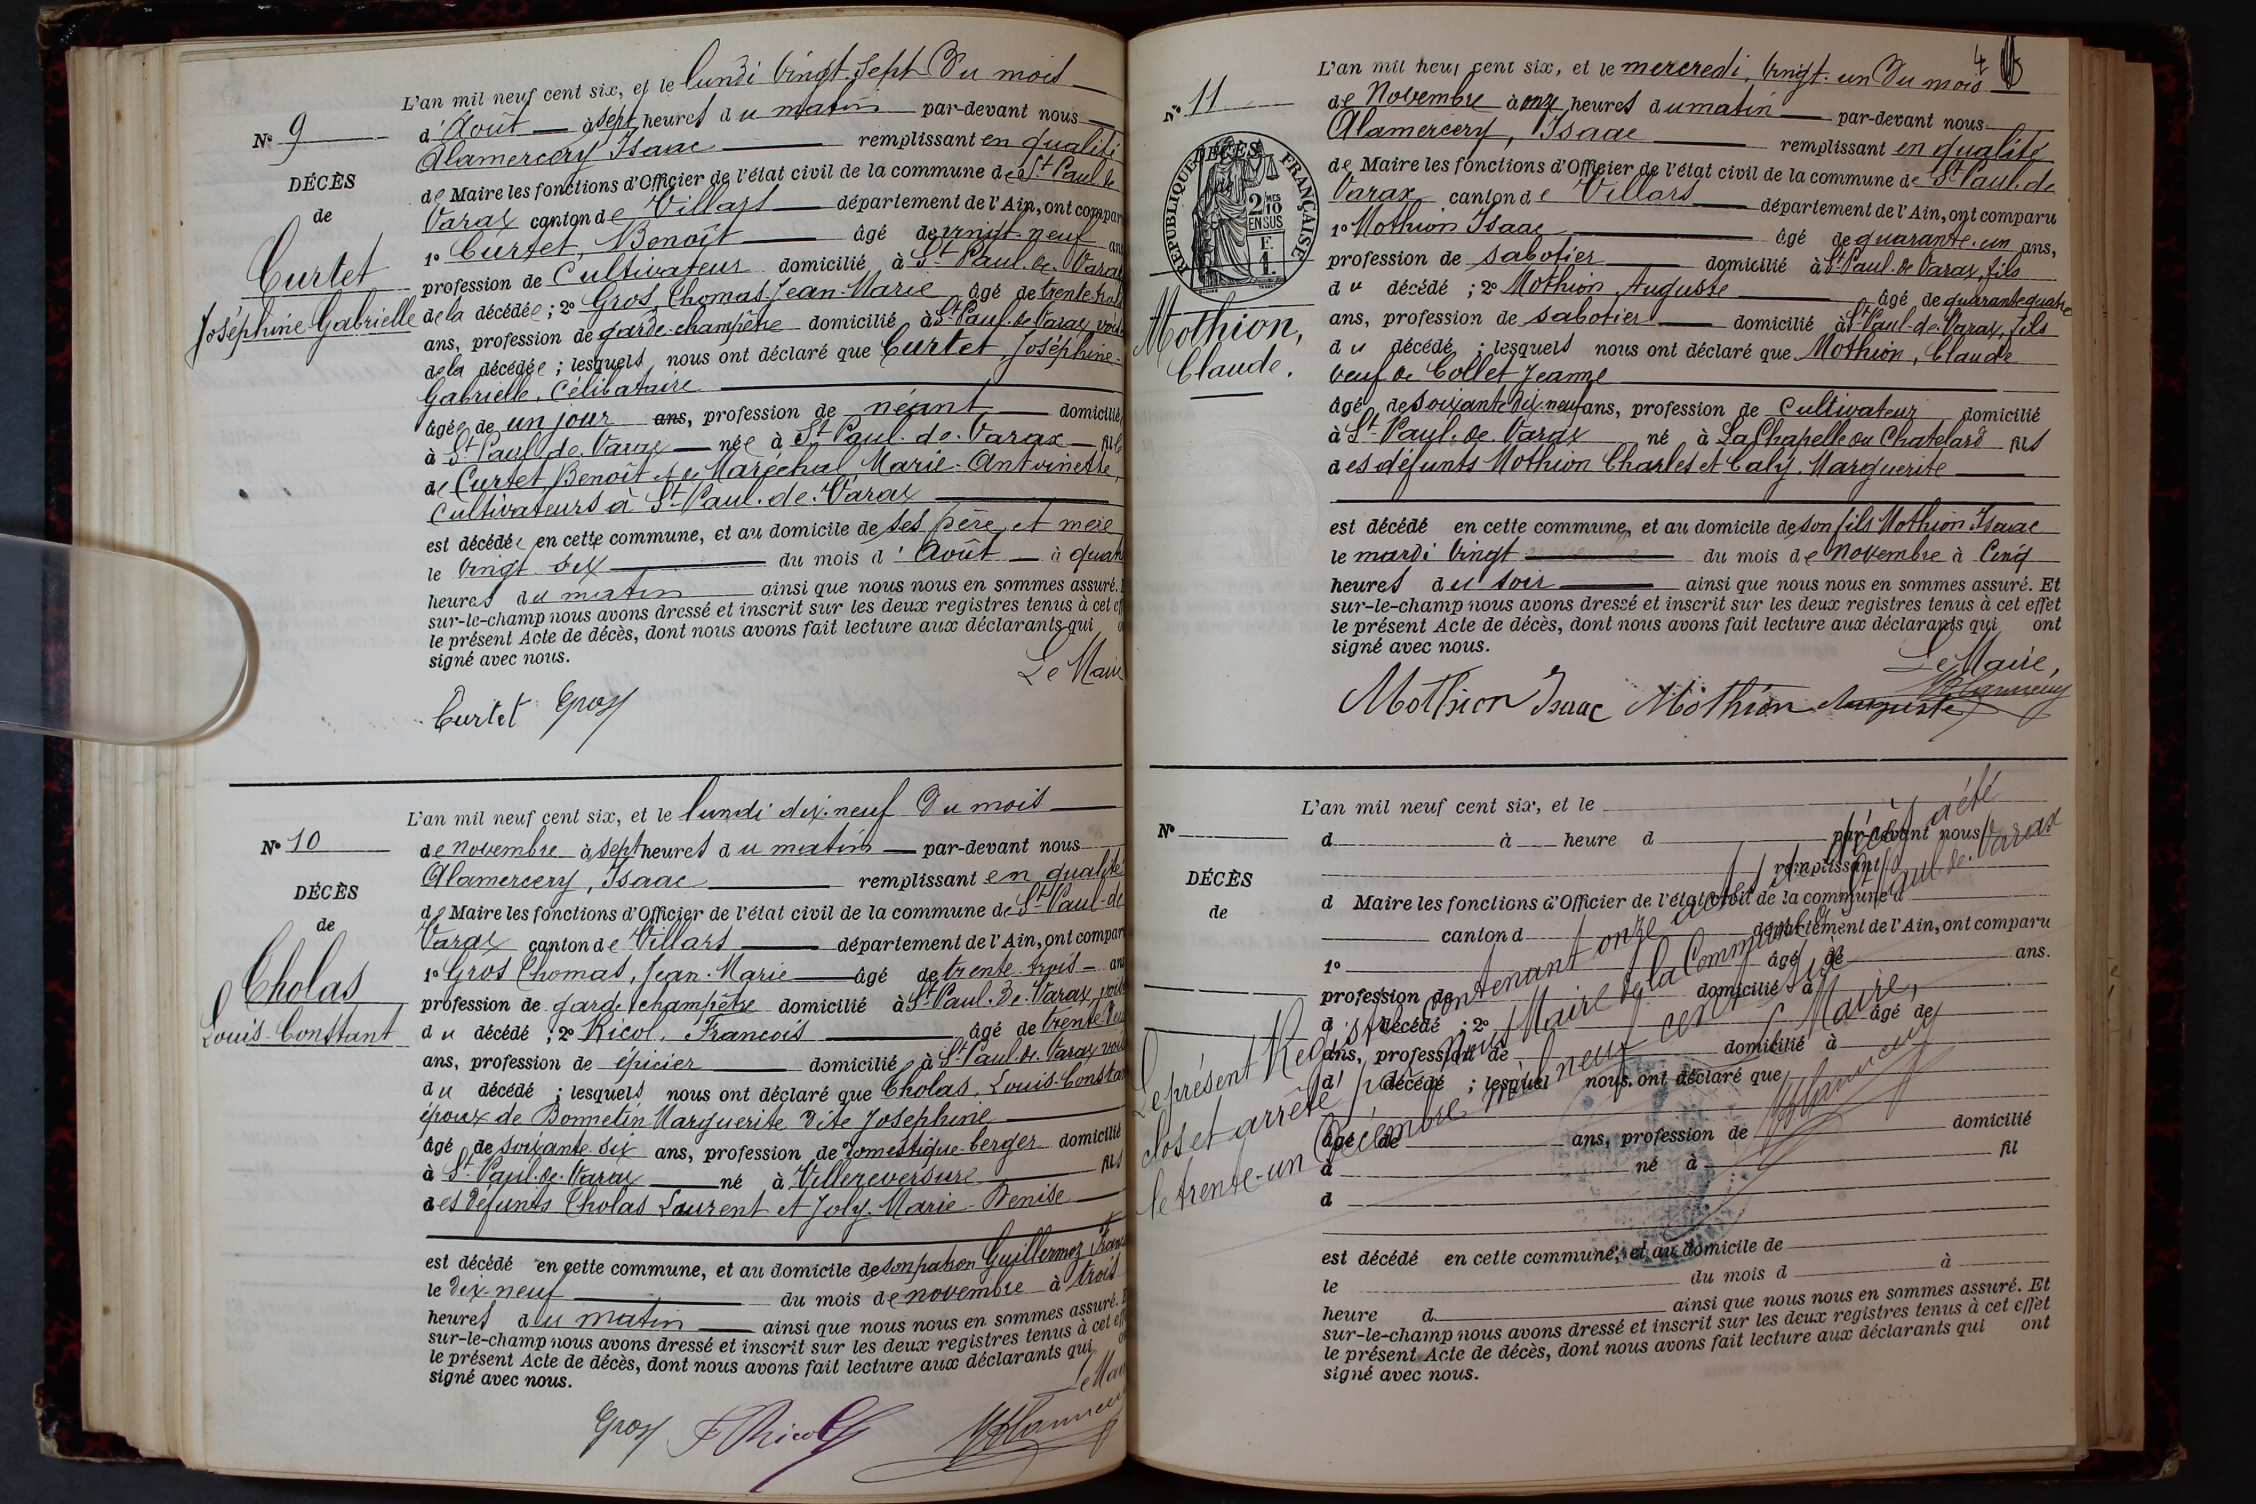 N° 9
DÉCÈS
de
Curtet
Joséphine Gabrielle
L'an mil neuf cent six, et le lundi vingt-sept du mois
d'Août à sept heures du matin par-devant nous
Alamercery Isaac remplissant en qualité
de Maire les fonctions d'Officier de l'état civil de la commune de St Paul de
Varax canton de Villars département de l'Ain, ont compar
1° Curtet, Benoît âgé de vingt-neuf ans
profession de Cultivateur domicilié à St Paul de Varax
de la décédée ; 2° Gros, Thomas Jean-Marie âgé de trente trois
ans, profession de garde-champêtre domicilié à St Paul de Varax voisin
de la décédée ; lesquels nous ont déclaré que Curtet, Joséphine-
Gabrielle, Célibataire
âgée de un jour ans, profession de néant domiciliée
à St Paul de Varax née à St Paul de Varax fille
de Curtet, Benoît et de Maréchal Marie-Antoinette,
Cultivateurs à St Paul de Varax
est décédée en cette commune, et au domicile de ses père et mère
le vingt six du mois d'Août à quatre
heures du matin ainsi que nous nous en sommes assuré. E
sur-le-champ nous avons dressé et inscrit sur les deux registres tenus à cet eff
le présent Acte de décès, dont nous avons fait lecture aux déclarants qui o
signé avec nous.
Le Maire
Curtet Gros
N° 10
DÉCÈS
de
Cholas
Louis-Constant
L'an mil neuf cent six, et le lundi dix-neuf du mois
de novembre à sept heures du matin par-devant nous
Alamercery, Isaac remplissant en qualité
de Maire les fonctions d'Officier de l'état civil de la commune de St Paul-de
Varax canton de Villars département de l'Ain, ont compar
1° Gros Thomas, Jean-Marie âgé de trente-trois ans
profession de garde champêtre domicilié à St Paul-de-Varax, voisin
du décédé ; 2° Ricol, François âgé de trente deux
ans, profession de épicier domicilié à St Paul-de-Varax voisin
du décédé ; lesquels nous ont déclaré que Cholas, Louis-Constant
époux de Bonnetin Marguerite dite Joséphine
âgé de soixante-six ans, profession de domestique-berger domicilié
à St Paul-de-Varax né à Villereversure fils
des défunts Cholas Laurent et Joly Marie-Denise
est décédé en cette commune, et au domicile de son patron Guillermoz Franç
le dix-neuf du mois de novembre à trois
heures du matin ainsi que nous nous en sommes assuré. E
sur-le-champ nous avons dressé et inscrit sur les deux registres tenus à cet eff
le présent Acte de décès, dont nous avons fait lecture aux déclarants qui o
signé avec nous.
Le Mai
Gros F Ricol Alamercery
4
N° 11
RÉPUBLIQUE FRANÇAISE
DÉCÈS
2/10 MES
EN SUS
Mothion,
Claude.
L'an mil neuf cent six, et le mercredi, vingt-un du mois
de Novembre à onze heures du matin par-devant nous
Alamercery, Isaac remplissant en qualité
de Maire les fonctions d'Officier de l'état civil de la commune de St Paul-de
Varax canton de Villars département de l'Ain, ont comparu
1° Mothion Isaac âgé de quarante-un ans,
profession de sabotier domicilié à St Paul-de Varax, fils
du décédé ; 2° Mothion Auguste âgé de quarante quatre
ans, profession de sabotier domicilié à St Paul-de-Varax, fils
du décédé ; lesquels nous ont déclaré que Mothion, Claude
veuf de Collet Jeanne
âgé de soixante dix neuf ans, profession de Cultivateur domicilié
à St Paul-de Varax né à La Chapelle du Chatelard fils
des défunts Mothion Charles et Caly, Marguerite
est décédé en cette commune, et au domicile de son fils Mothion Isaac
le mardi vingt du mois de Novembre à Cinq
heures du soir ainsi que nous nous en sommes assuré. Et
sur-le-champ nous avons dressé et inscrit sur les deux registres tenus à cet effet
le présent Acte de décès, dont nous avons fait lecture aux déclarants qui ont
signé avec nous.
Le Maire,
Mothion Isaac Mothion Auguste Alamercery
N°
DÉCÈS
de
L'an mil neuf cent six, et le
d à heure d par-devant nous
remplissant
d Maire les fonctions d'Officier de l'état civil de la commune d
canton d département de l'Ain, ont comparu
1° âgé de ans.
profession de domicilié à
d décédé ; 2° âgé de
ans, profession de domicilié à
d décédé ; lesquel nous ont déclaré que
âgé de ans, profession de domicilié
d né à fil
d
est décédé en cette commune, et au domicile de
le du mois d à
heure d ainsi que nous nous en sommes assuré. Et
sur-le-champ nous avons dressé et inscrit sur les deux registres tenus à cet effet
le présent Acte de décès, dont nous avons fait lecture aux déclarants qui ont
signé avec nous.
Le présent Registre contenant onze actes de décès a été
clos et arrêté par nous Maire de la Commune de St Paul-de-Varax
le trente-un Décembre mil neuf cent six
Le Maire,
Alamercery